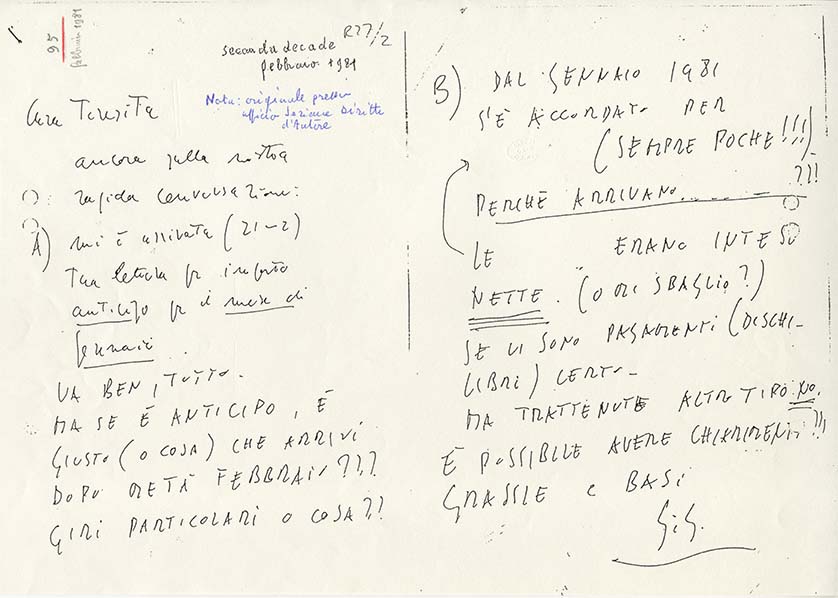 95
febbraio 1981
R27/2
seconda decade
febbraio 1981
Nota: originale presso
ufficio Sezione Diritti
d'Autore
Cara Teresita
ancora sulla nostra
rapida conversazione:
A) mi è arrivata (21-2)
tua lettera per
anticipo per il mese di
Gennaio..
VA BENE, TUTTO.
MA SE È ANTICIPO, È
GIUSTO (O COSA) CHE ARRIVI
DOPO METÀ FEBBRAIO???
GIRI PARTICOLARI O COSA?!
B) DAL GENNAIO 1981
S'È ACCORDATO PER
(SEMPRE POCHE!!!)
PERCHÈ ARRIVANO........ — ???!
LE ERANO INTESO
NETTE. (O MI SBAGLIO?)
SE VI SONO PAGAMENTI (DISCHI-
LIBRI) CERTO-
MA TRATTENUTE ALTRO TIPO NO.
È POSSIBILE AVERE CHIARIMENTI?!!
GRASSIE e BASI
GiG.